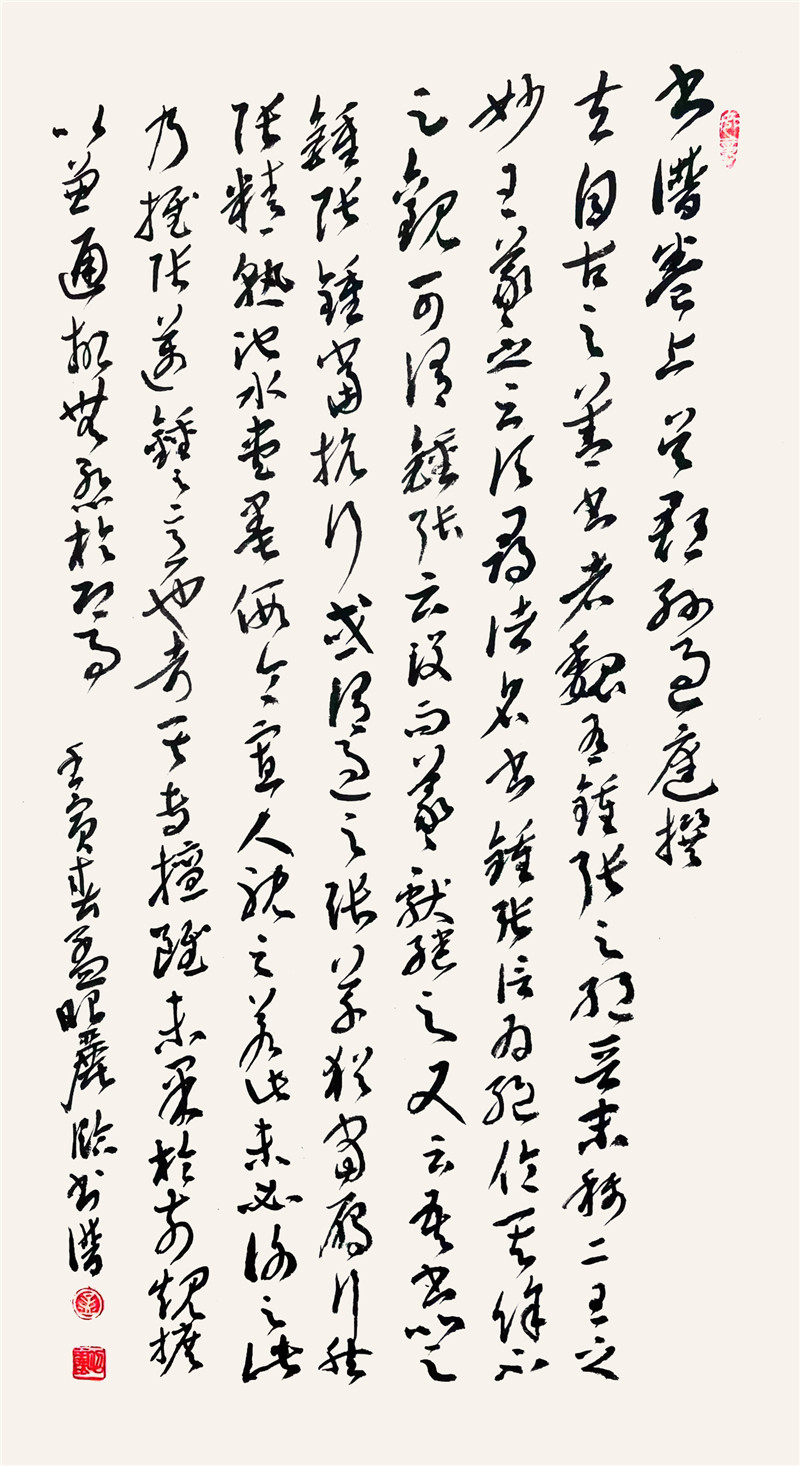 書譜卷上吳郡孫過庭撰
夫自古之善書者魏有鍾張之絕晉末稱二王之
妙王羲之云頃尋諸名書鍾張信為絕倫其餘不
足觀可謂鍾張云沒而羲獻繼之又云吾書比之
鍾張鍾當抗行或謂過之張草猶當雁行然
張精熟池水盡墨假令寡人耽之若此未必謝之此
乃推張邁鍾之意也考其專擅雖未果於前規摭
以兼通故無慚於即事
壬寅春孟昭麗臨書譜